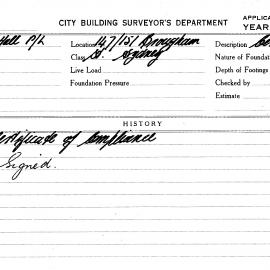 CITY BUILDING SURVEYOR'S DEPARTMENT
APPLICA
YEAR
Hall P/L Location 147/151 Brougham Description
Class St. Sydney Nature of Foundat
Live Load Depth of Footings
Foundation Pressure Checked by
Estimate
HISTORY
ertificate of Compliance
Signed.